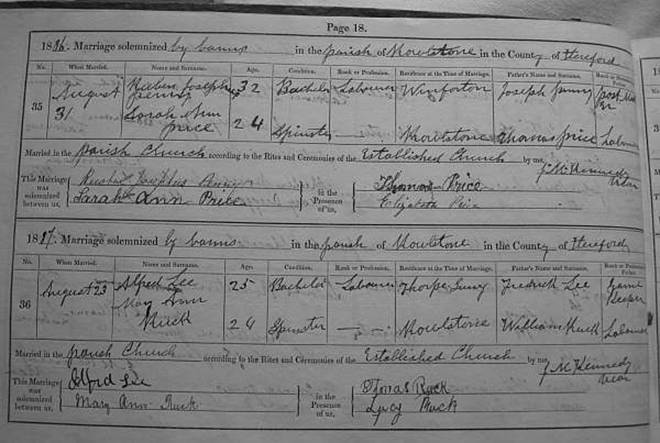 Page 18.
1886. Marriage solemnized by banns in the parish of Rowlstone in the County of Hereford
No. When Married. Name and Surname. Age. Condition. Rank or Profession. Residence at the Time of Marriage. Father's Name and Surname. Rank or Profession
35 August 31 Josephus 32 Bachelor Labourer Winforton Joseph
Sarah Ann Price 24 Spinster — Rowlstone Thomas Price Labourer
Married in the parish Church according to the Rites and Ceremonies of the Established Church by me, Kennedy Vicar
This Marriage was solemnized between us, Josephus
Sarah Ann Price
in the Presence of us, Thomas Price
Elizabeth Price
1887. Marriage solemnized by banns in the parish of Rowlstone in the County of Hereford
No. When Married. Name and Surname. Age. Condition. Rank or Profession. Residence at the Time of Marriage. Father's Name and Surname. Rank or Profession of Father.
36 August 23 Alfred Lee 25 Bachelor Labourer Fredrick Lee Game Keeper
Mary Ann Ruck 24 Spinster — Rowlstone William Ruck Labourer
Married in the parish Church according to the Rites and Ceremonies of the Established Church by me, Kennedy Vicar
This Marriage was solemnized between us, Alfred Lee
Mary Ann Ruck
in the Presence of us, Thomas Ruck
Lucy Ruck